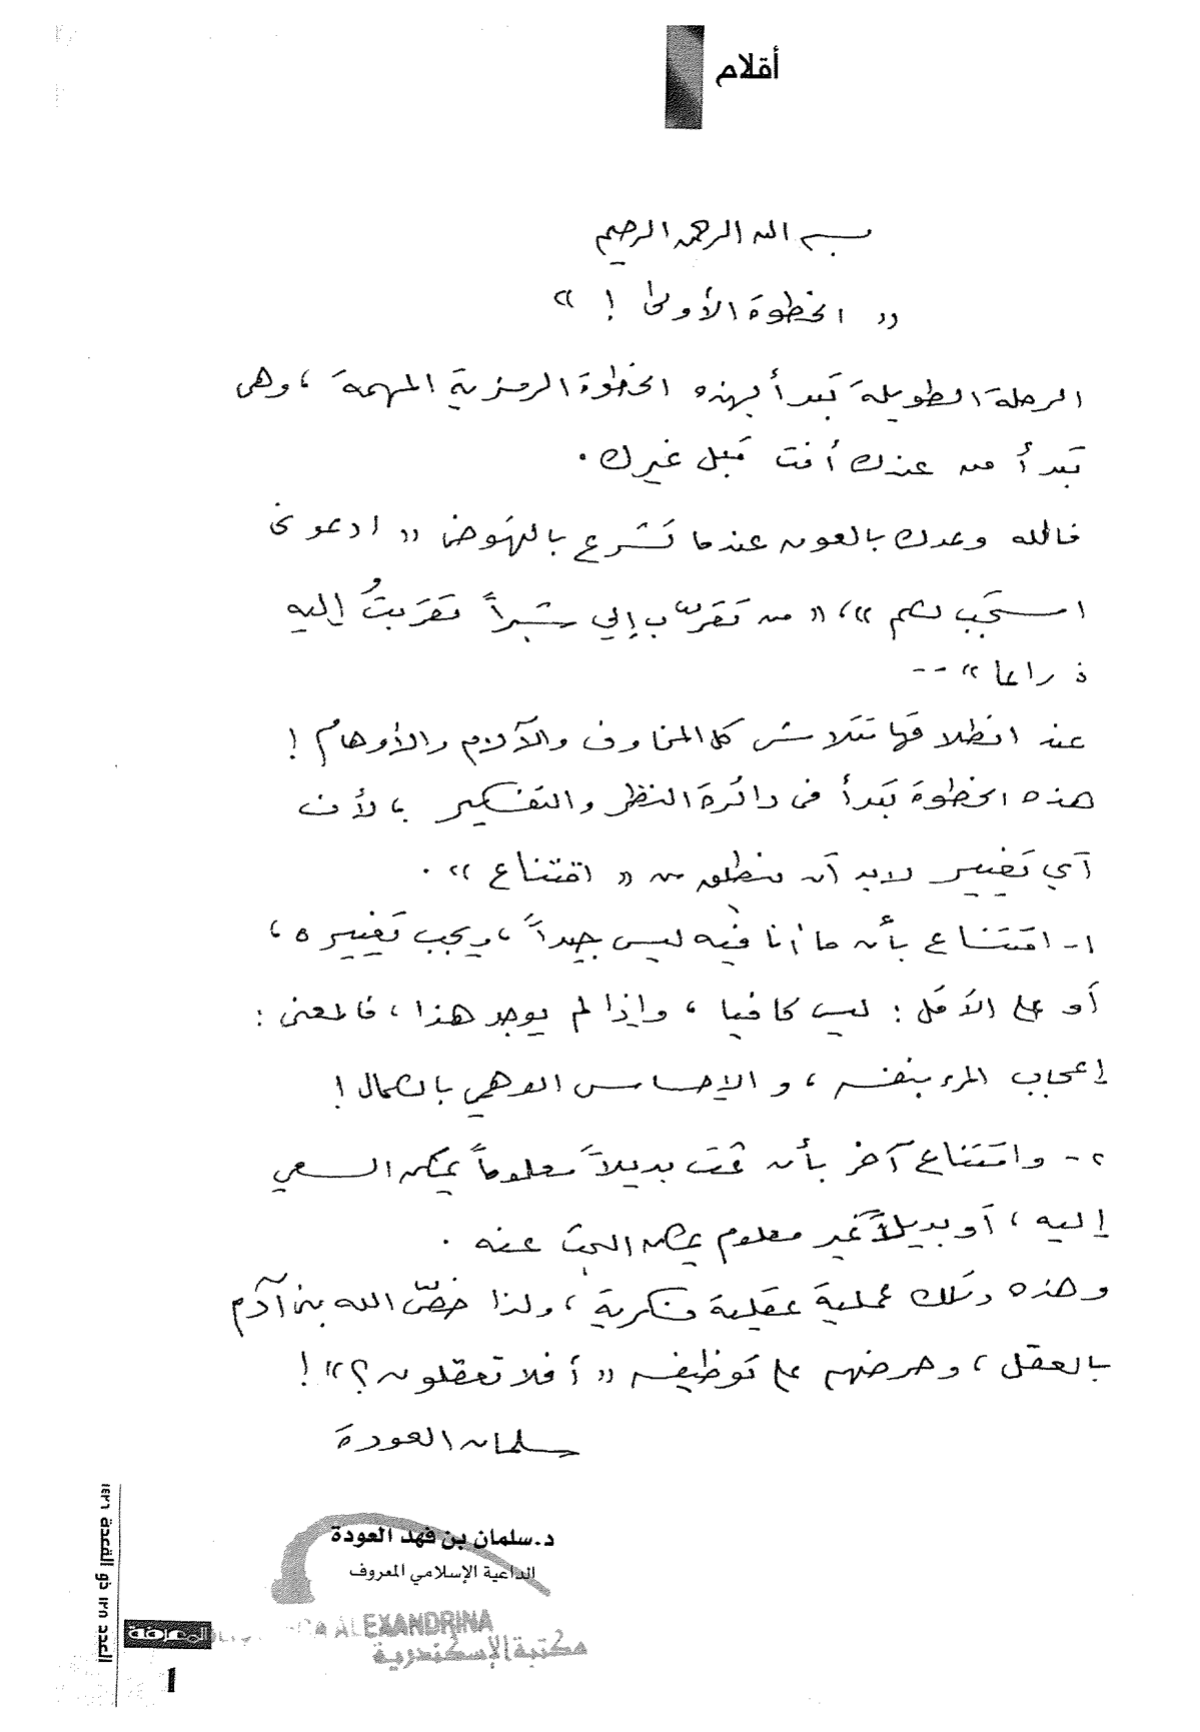 أقلام
بسم الله الرحمن الرحيم
« الخطوة الأولى ! »
الرحلة الطويلة تبدأ بهذه الخطوة الرمزية المهمة ، وهي
تبدأ من عندك أنت قبل غيرك .
فالله وعدك بالعون عندما تشرع بالنهوض « ادعوني
استجب لكم » ، « من تقرّب إلي شبراً تقربتُ إليه
ذراعا » --
عند انطلاقها تتلاشى كل المخاوف والآلام والأوهام !
هذه الخطوة تبدأ في دائرة النظر والتفكير ، لأن
أي تغيير لابد أن ينطلق من « اقتناع » .
١- اقتناع بأن ما أنا فيه ليس جيداً ، ويجب تغييره ،
أو على الأقل : ليس كافيا ، وإذا لم يوجد هذا ، فالمعنى :
إعجاب المرء بنفسه ، والإحساس الوهمي بالكمال !
٢- واقتناع آخر بأن ثمت بديلاً معلوماً يمكن السعي
إليه ، أو بديلاً غير معلوم يمكن البحث عنه .
وهذه وتلك عملية عقلية فكرية ، ولذا خصّ الله بني آدم
بالعقل ، وحرضهم على توظيفه « أفلا تعقلون ؟ » !
سلمان العودة
د.سلمان بن فهد العودة
الداعية الإسلامي المعروف
ALEXANDRINA
مكتبة الإسكندرية
المعرفة
العدد ١٢٨ ذو القعدة ١٤٢٦
1